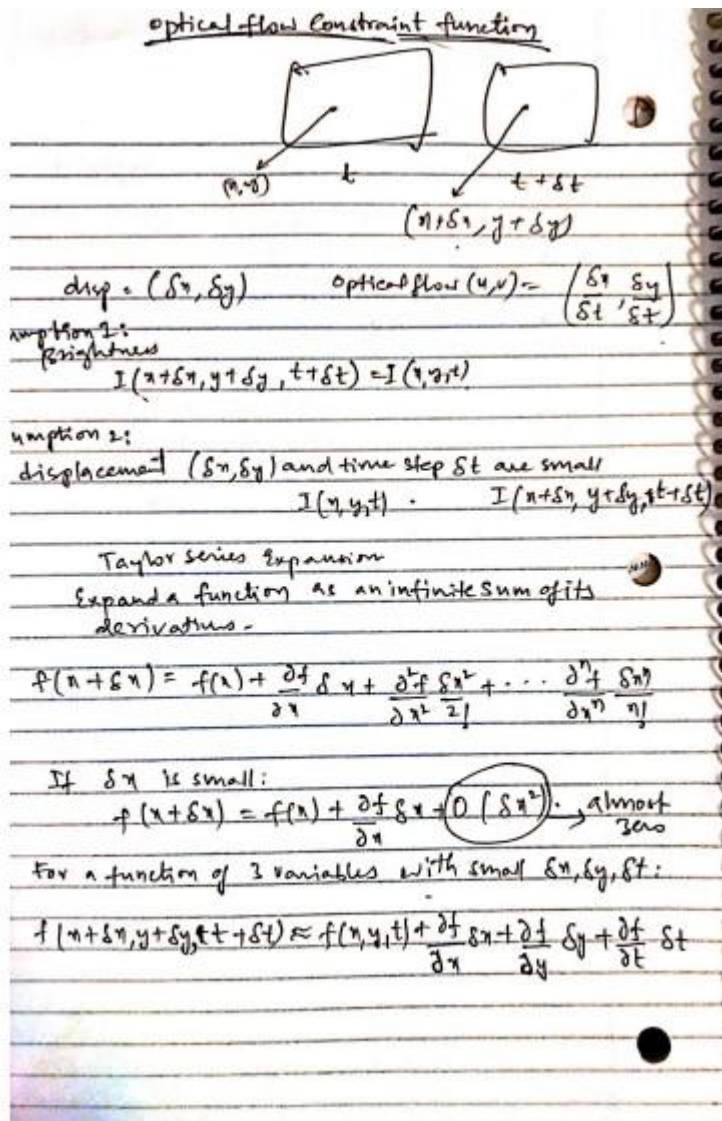 optical flow Constraint function
(x,y) t t + δt
(x+δx, y + δy)
disp = (δx, δy) optical flow (u,v) = (δx/δt, δy/δt)
umption 1:
Brightness
I(x+δx, y+δy, t+δt) = I(x,y,t)
umption 2:
displacement (δx,δy) and time step δt are small
I(x,y,t) . I(x+δx, y+δy, t+δt)
Taylor series Expansion
Expand a function as an infinite sum of its
derivatives -
f(x+δx) = f(x) + ∂f/∂x δx + ∂²f/∂x² δx²/2! + ... ∂ⁿf/∂xⁿ δxⁿ/n!
If δx is small:
f(x+δx) = f(x) + ∂f/∂x δx + O(δx²). → almost
zero
For a function of 3 variables with small δx, δy, δt:
f(x+δx, y+δy, t+δt) ≈ f(x,y,t) + ∂f/∂x δx + ∂f/∂y δy + ∂f/∂t δt